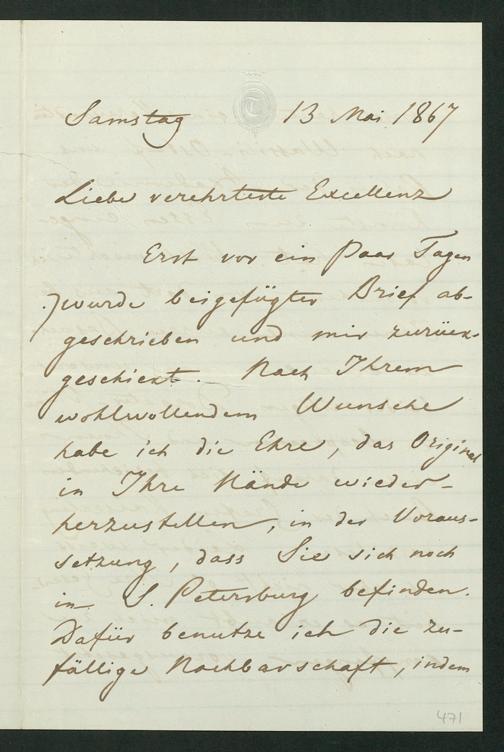 Samstag 13 Mai 1867
Liebe verehrteste Excellenz
Erst vor ein Paar Tagen
wurde beigefügter Brief ab-
geschrieben und mir zurück-
geschickt. Nach Ihrem
wohlwollendem Wunsche
habe ich die Ehre, das Original
in Ihre Hände wieder-
herzustellen, in der Voraus-
setzung, dass Sie sich noch
in S. Petersburg befinden.
Dafür benutze ich die zu-
fällige Nachbarschaft, indem
471